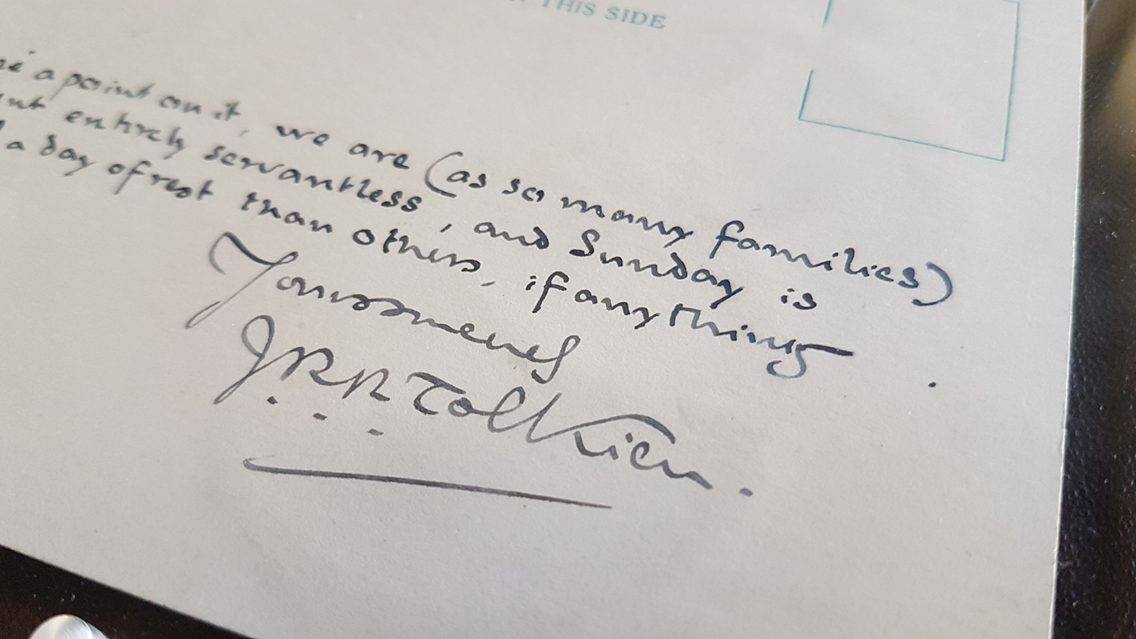 THIS SIDE
a point on it, we are (as so many families)
entirely servantless, and Sunday is
a day of rest than others, if anything.
Yours
J.R.R. Tolkien.